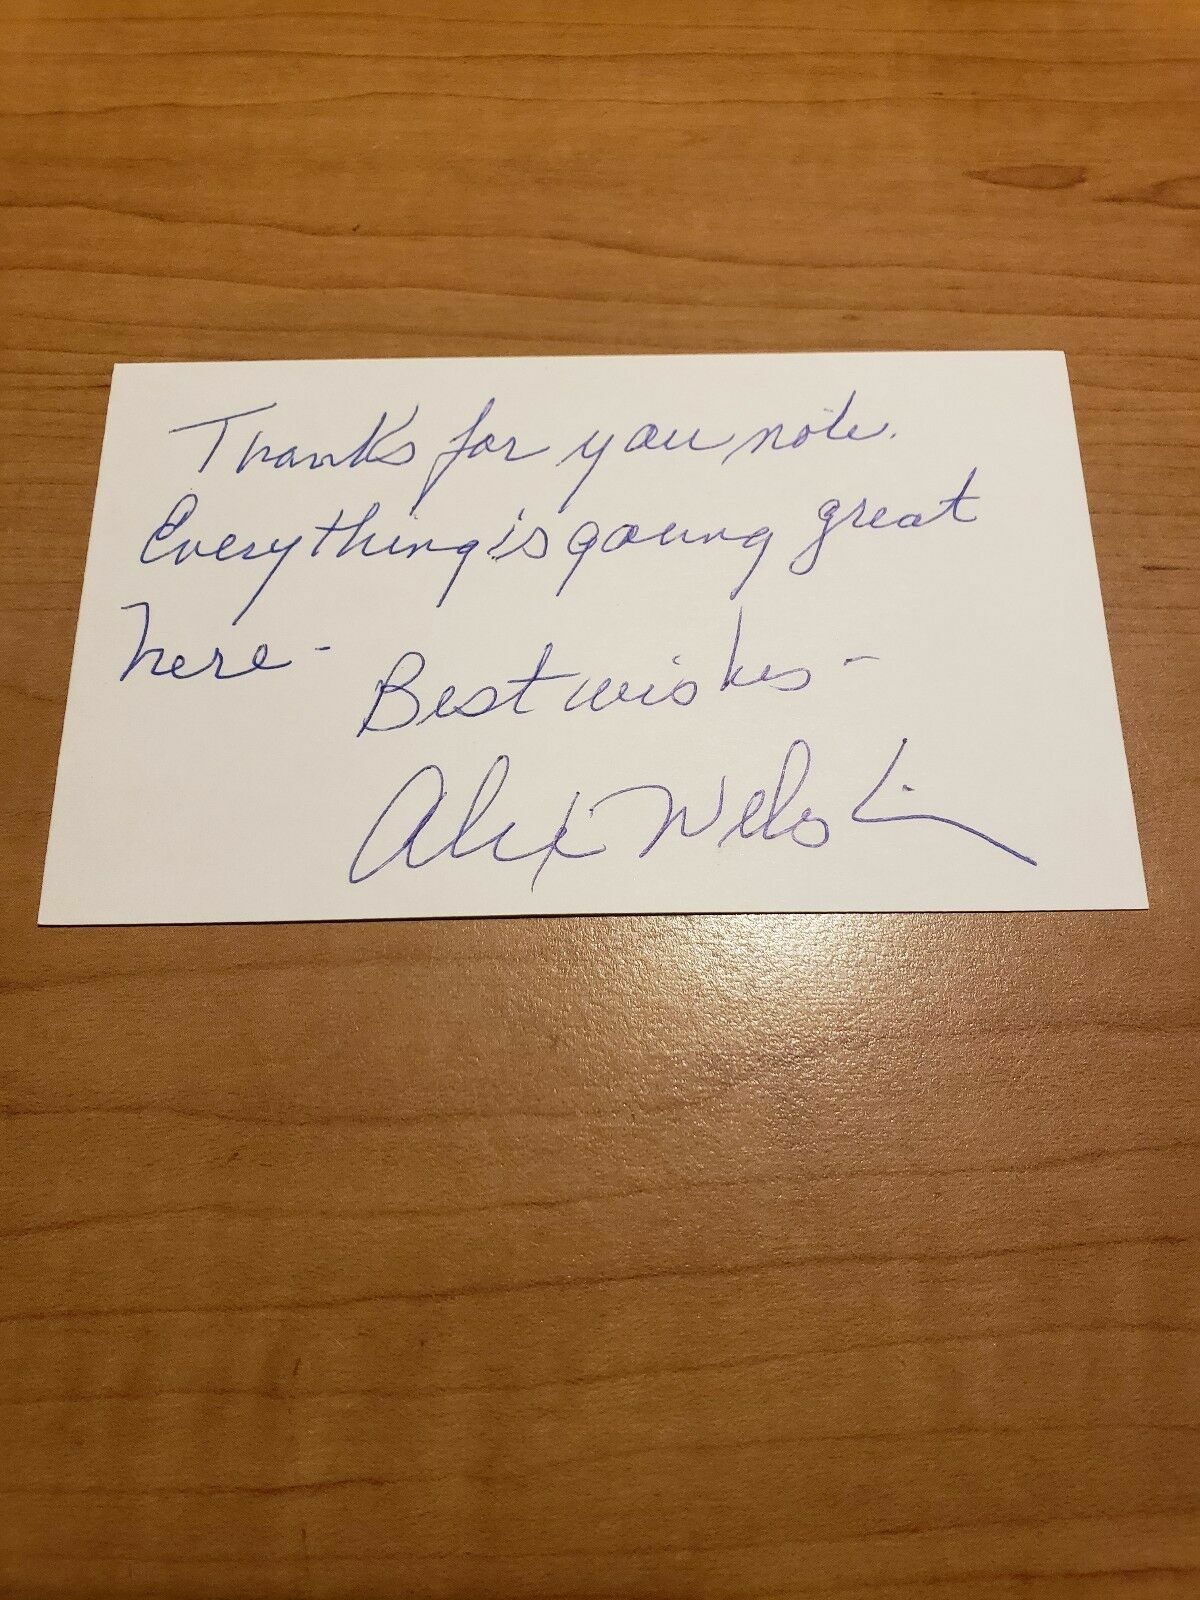 Thanks for you note.
Everything is going great
here -
Best wishes -
Alex Webster